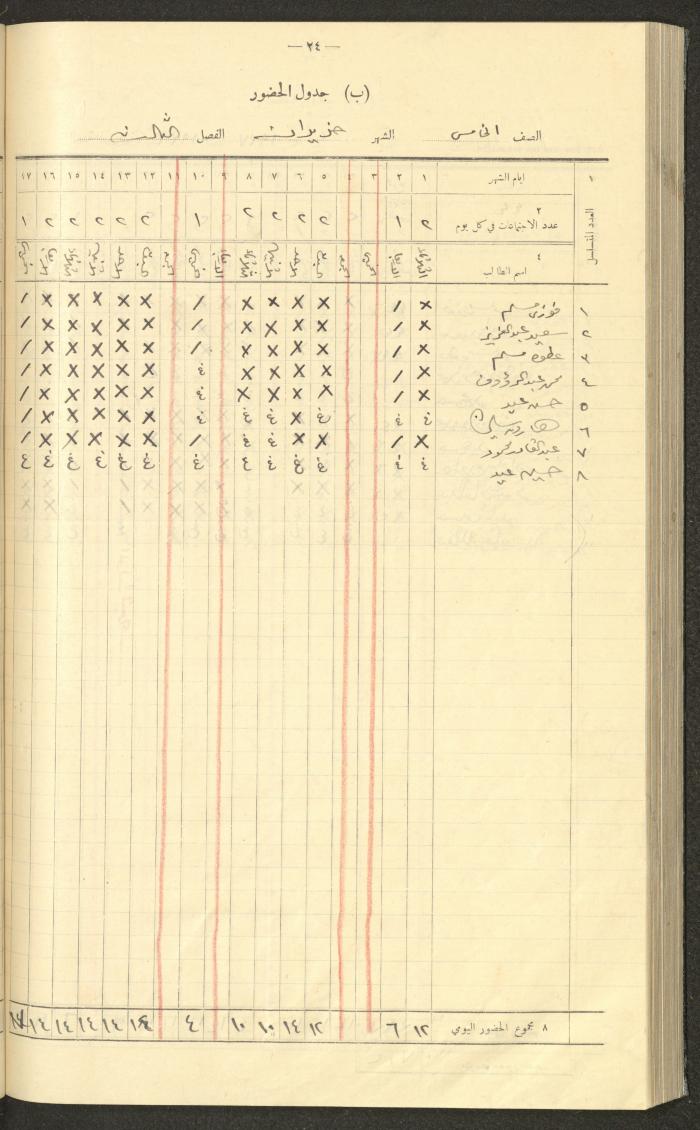 — ٢٤ —
(ب) جدول الحضور
الصف الخامس الشهر حزيران الفصل الثالث
١ ايام الشهر ١ ٢ ٣ ٤ ٥ ٦ ٧ ٨ ٩ ١٠ ١١ ١٢ ١٣ ١٤ ١٥ ١٦ ١٧
العدد المتسلسل
٢
عدد الاجتماعات في كل يوم ٢ ١ ٢ ٢ ٢ ٢ ١ ٢ ٢ ٢ ٢ ٢ ١
٤
اسم الطالب الثلاثاء الاربعاء الخميس الجمعة السبت الاحد الاثنين الثلاثاء الاربعاء الخميس الجمعة السبت الاحد الاثنين الثلاثاء الاربعاء الخميس
١ فوزي مسلم X / X X X X / X X X X X /
٢ سعيد عبد العزيز X / X X X X / X X X X X /
٣ عطوه مسلم X / X X X X / X X X X X /
٤ محمد عبد الرؤوف X / X X X X غ X X X X X /
٥ حسن عيد X / X X X X غ X X X X X /
٦ هارون سليمان غ غ غ X غ غ غ X X X X X /
٧ عبد القادر محمود X / X X غ غ / X X X X X /
٨ حسين عيد غ غ غ غ غ غ غ غ غ غ غ غ غ
٨ مجموع الحضور اليومي ١٢ ٦ ١٢ ١٤ ١٠ ١٠ ٤ ١٤ ١٤ ١٤ ١٤ ١٤